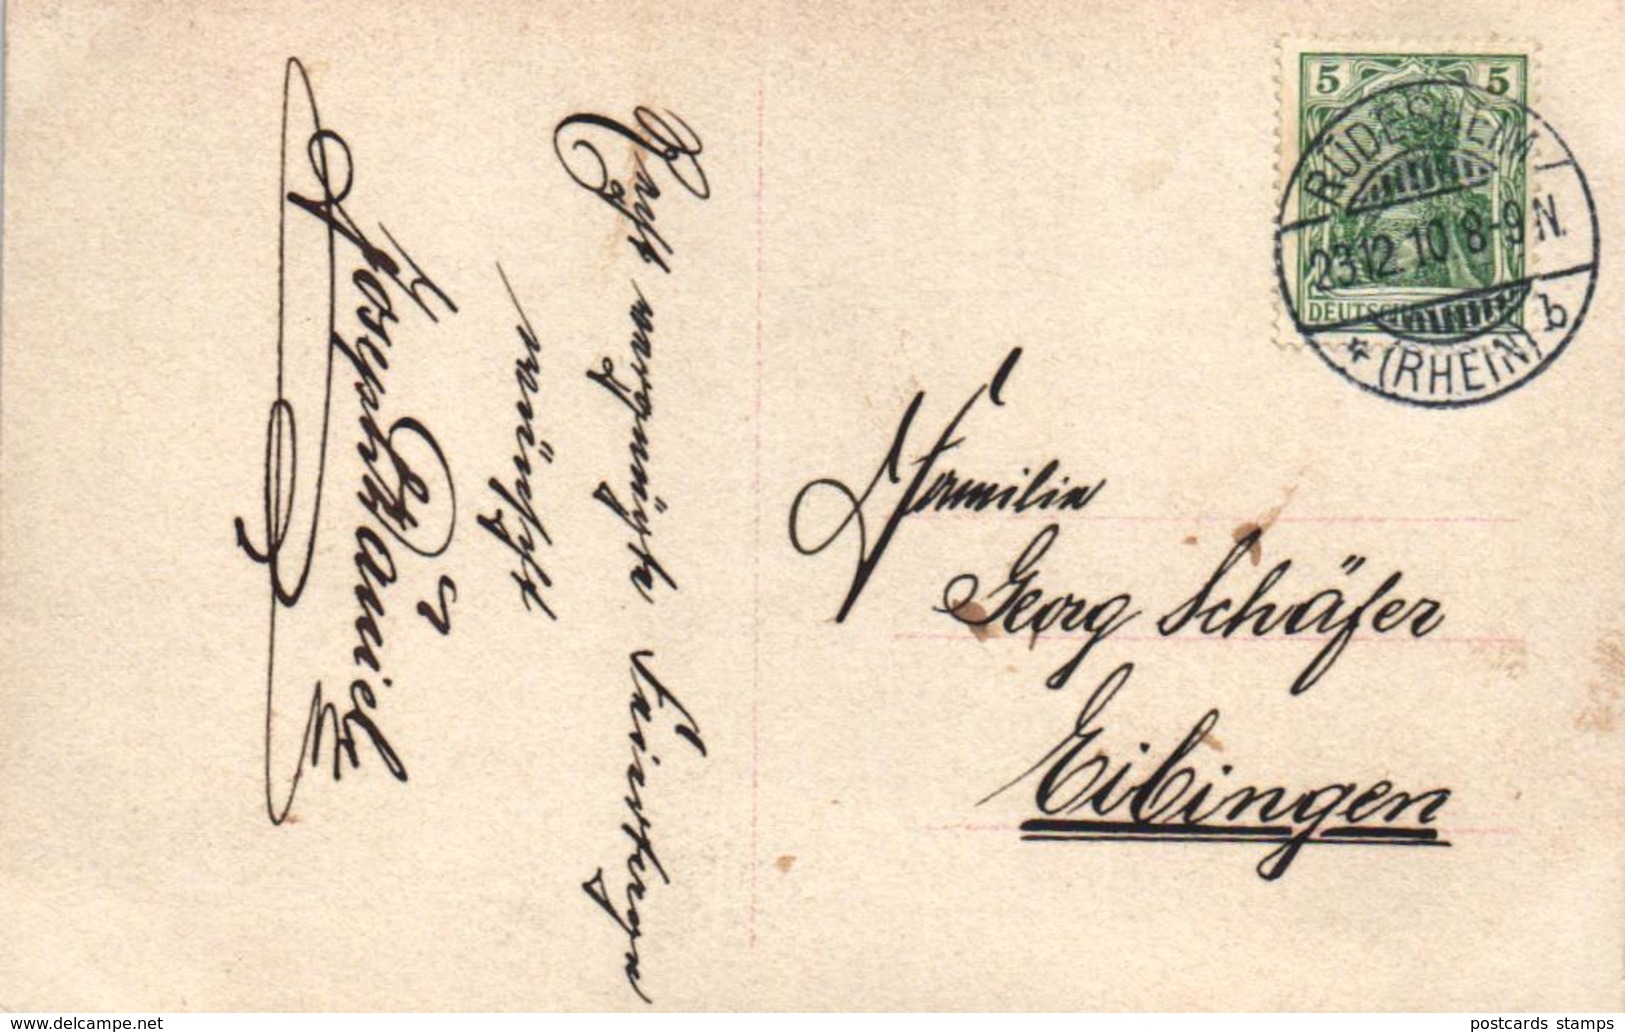 Recht vergnügte Feiertage
wünscht
Joseph Daniel
5 5
DEUTSCH
RÜDESHEIM
23.12.10 8-9N.
* (RHEIN) b
Familie
Georg Schäfer
Eibingen
www.delcampe.net
postcards stamps